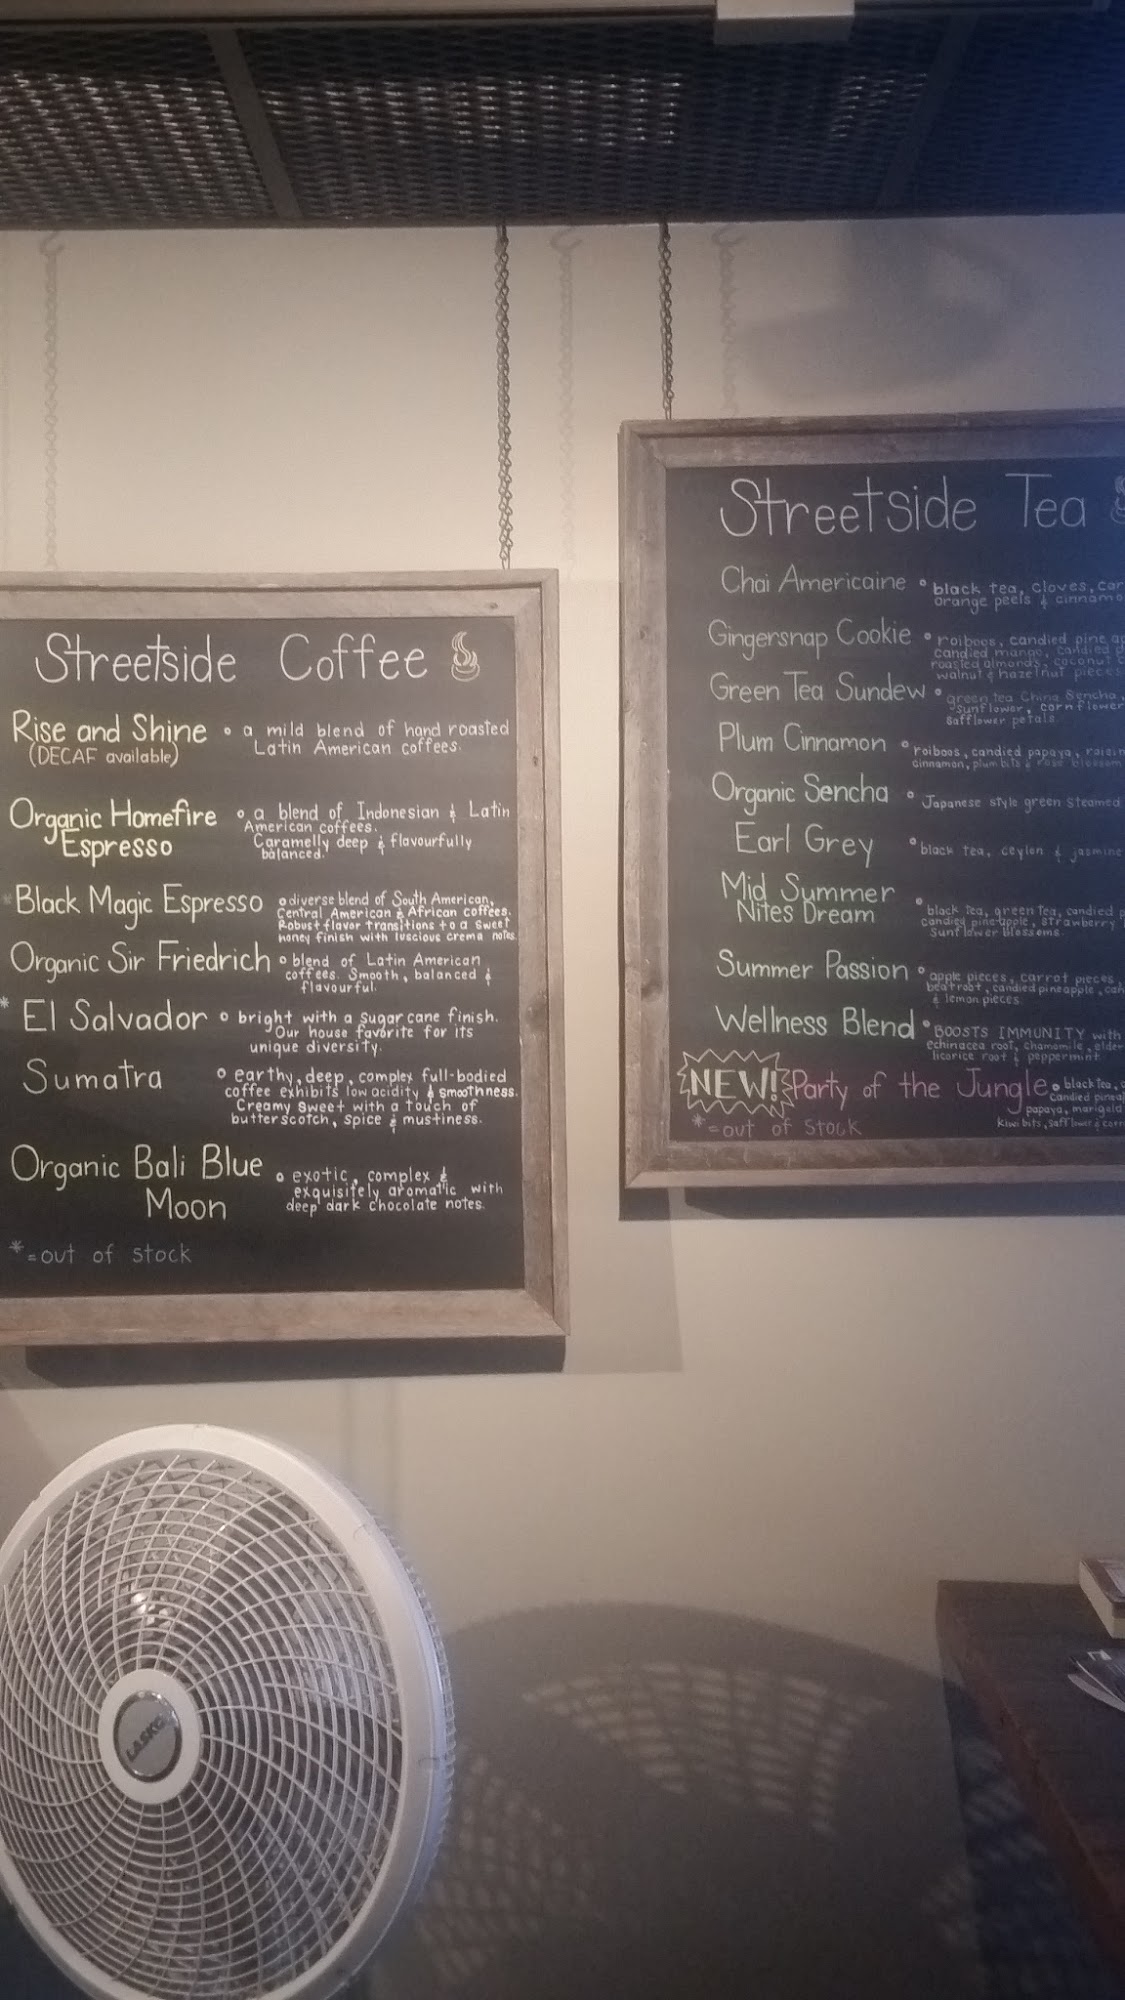 Streetside Coffee
Rise and Shine
(DECAF available)
• a mild blend of hand roasted
Latin American coffees.
Organic Homefire
Espresso
• a blend of Indonesian & Latin
American coffees.
Caramelly deep & flavourfully
balanced.
*Black Magic Espresso
• diverse blend of South American,
Central American & African coffees.
Robust flavor transitions to a sweet
honey finish with luscious crema notes.
Organic Sir Friedrich
• blend of Latin American
coffees. Smooth, balanced &
flavourful.
* El Salvador
• bright with a sugar cane finish.
Our house favorite for its
unique diversity.
Sumatra
• earthy, deep, complex full-bodied
coffee exhibits low acidity & smoothness.
Creamy sweet with a touch of
butterscotch, spice & mustiness.
Organic Bali Blue
Moon
• exotic, complex &
exquisitely aromatic with
deep dark chocolate notes.
*=out of stock
Streetside Tea
Chai Americaine
• black tea, cloves, car
orange peels & cinnamo
Gingersnap Cookie
• roiboos, candied pine ap
candied mango, candied
roasted almonds, coconut
walnut & hazelnut pieces
Green Tea Sundew
• green tea China Sencha,
sunflower, cornflower
safflower petals.
Plum Cinnamon
• roiboos, candied papaya, raisin
cinnamon, plum bits & rose blossom
Organic Sencha
• Japanese style green steamed
Earl Grey
• black tea, ceylon & jasmine
Mid Summer
Nites Dream
• black tea, green tea, candied p
candied pineapple, strawberry
sunflower blossoms.
Summer Passion
• apple pieces, carrot pieces,
beatroot, candied pineapple, can
& lemon pieces
Wellness Blend
• BOOSTS IMMUNITY with
echinacea root, chamomile, elder
licorice root & peppermint.
NEW! Party of the Jungle
• black tea,
candied pinea
papaya, marigold
kiwi bits, safflower & corn
*=out of stock
LASKO